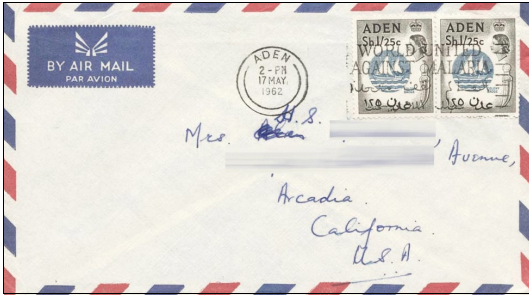 BY AIR MAIL
PAR AVION
ADEN
2-PM
17 MAY.
1962
ADEN
Sh1/25c
ADEN
Sh1/25c
WORLD UNITED
AGAINST MALARIA
عدن ١٢٥
H.S.
Mrs.
Avenue,
Arcadia
California.
U.S.A.